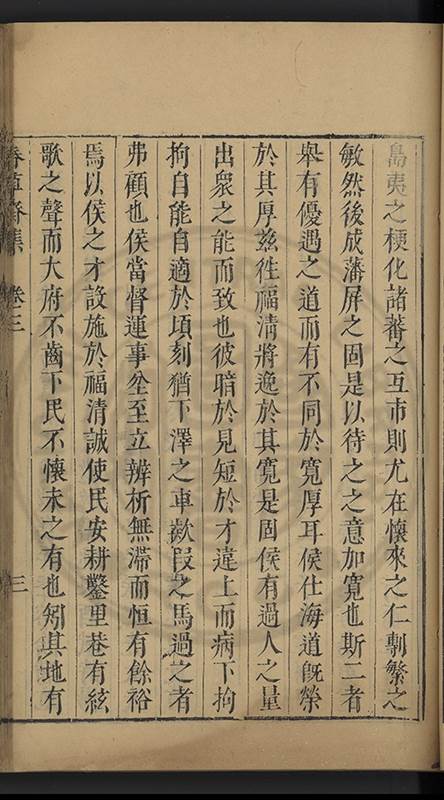 島夷之梗化諸蕃之互市則尤在懷來之仁剸繁之
敏然後成藩屏之固是以待之之意加寬也斯二者
舉有優遇之道而有不同於寬厚耳侯仕海道旣榮
於其厚兹徃福淸將逸於其寬是固侯有過人之量
出衆之能而致也彼暗於見短於才違上而病下拘
拘自能自適於頃刻猶下澤之車款段之馬過之者
弗顧也侯當督運事坌至立辨析無滯而恒有餘裕
焉以侯之才設施於福清誠使民安耕鑿里巷有絃
歌之聲而大府不齒下民不懷未之有也矧其地有
春草齋集 卷三 三